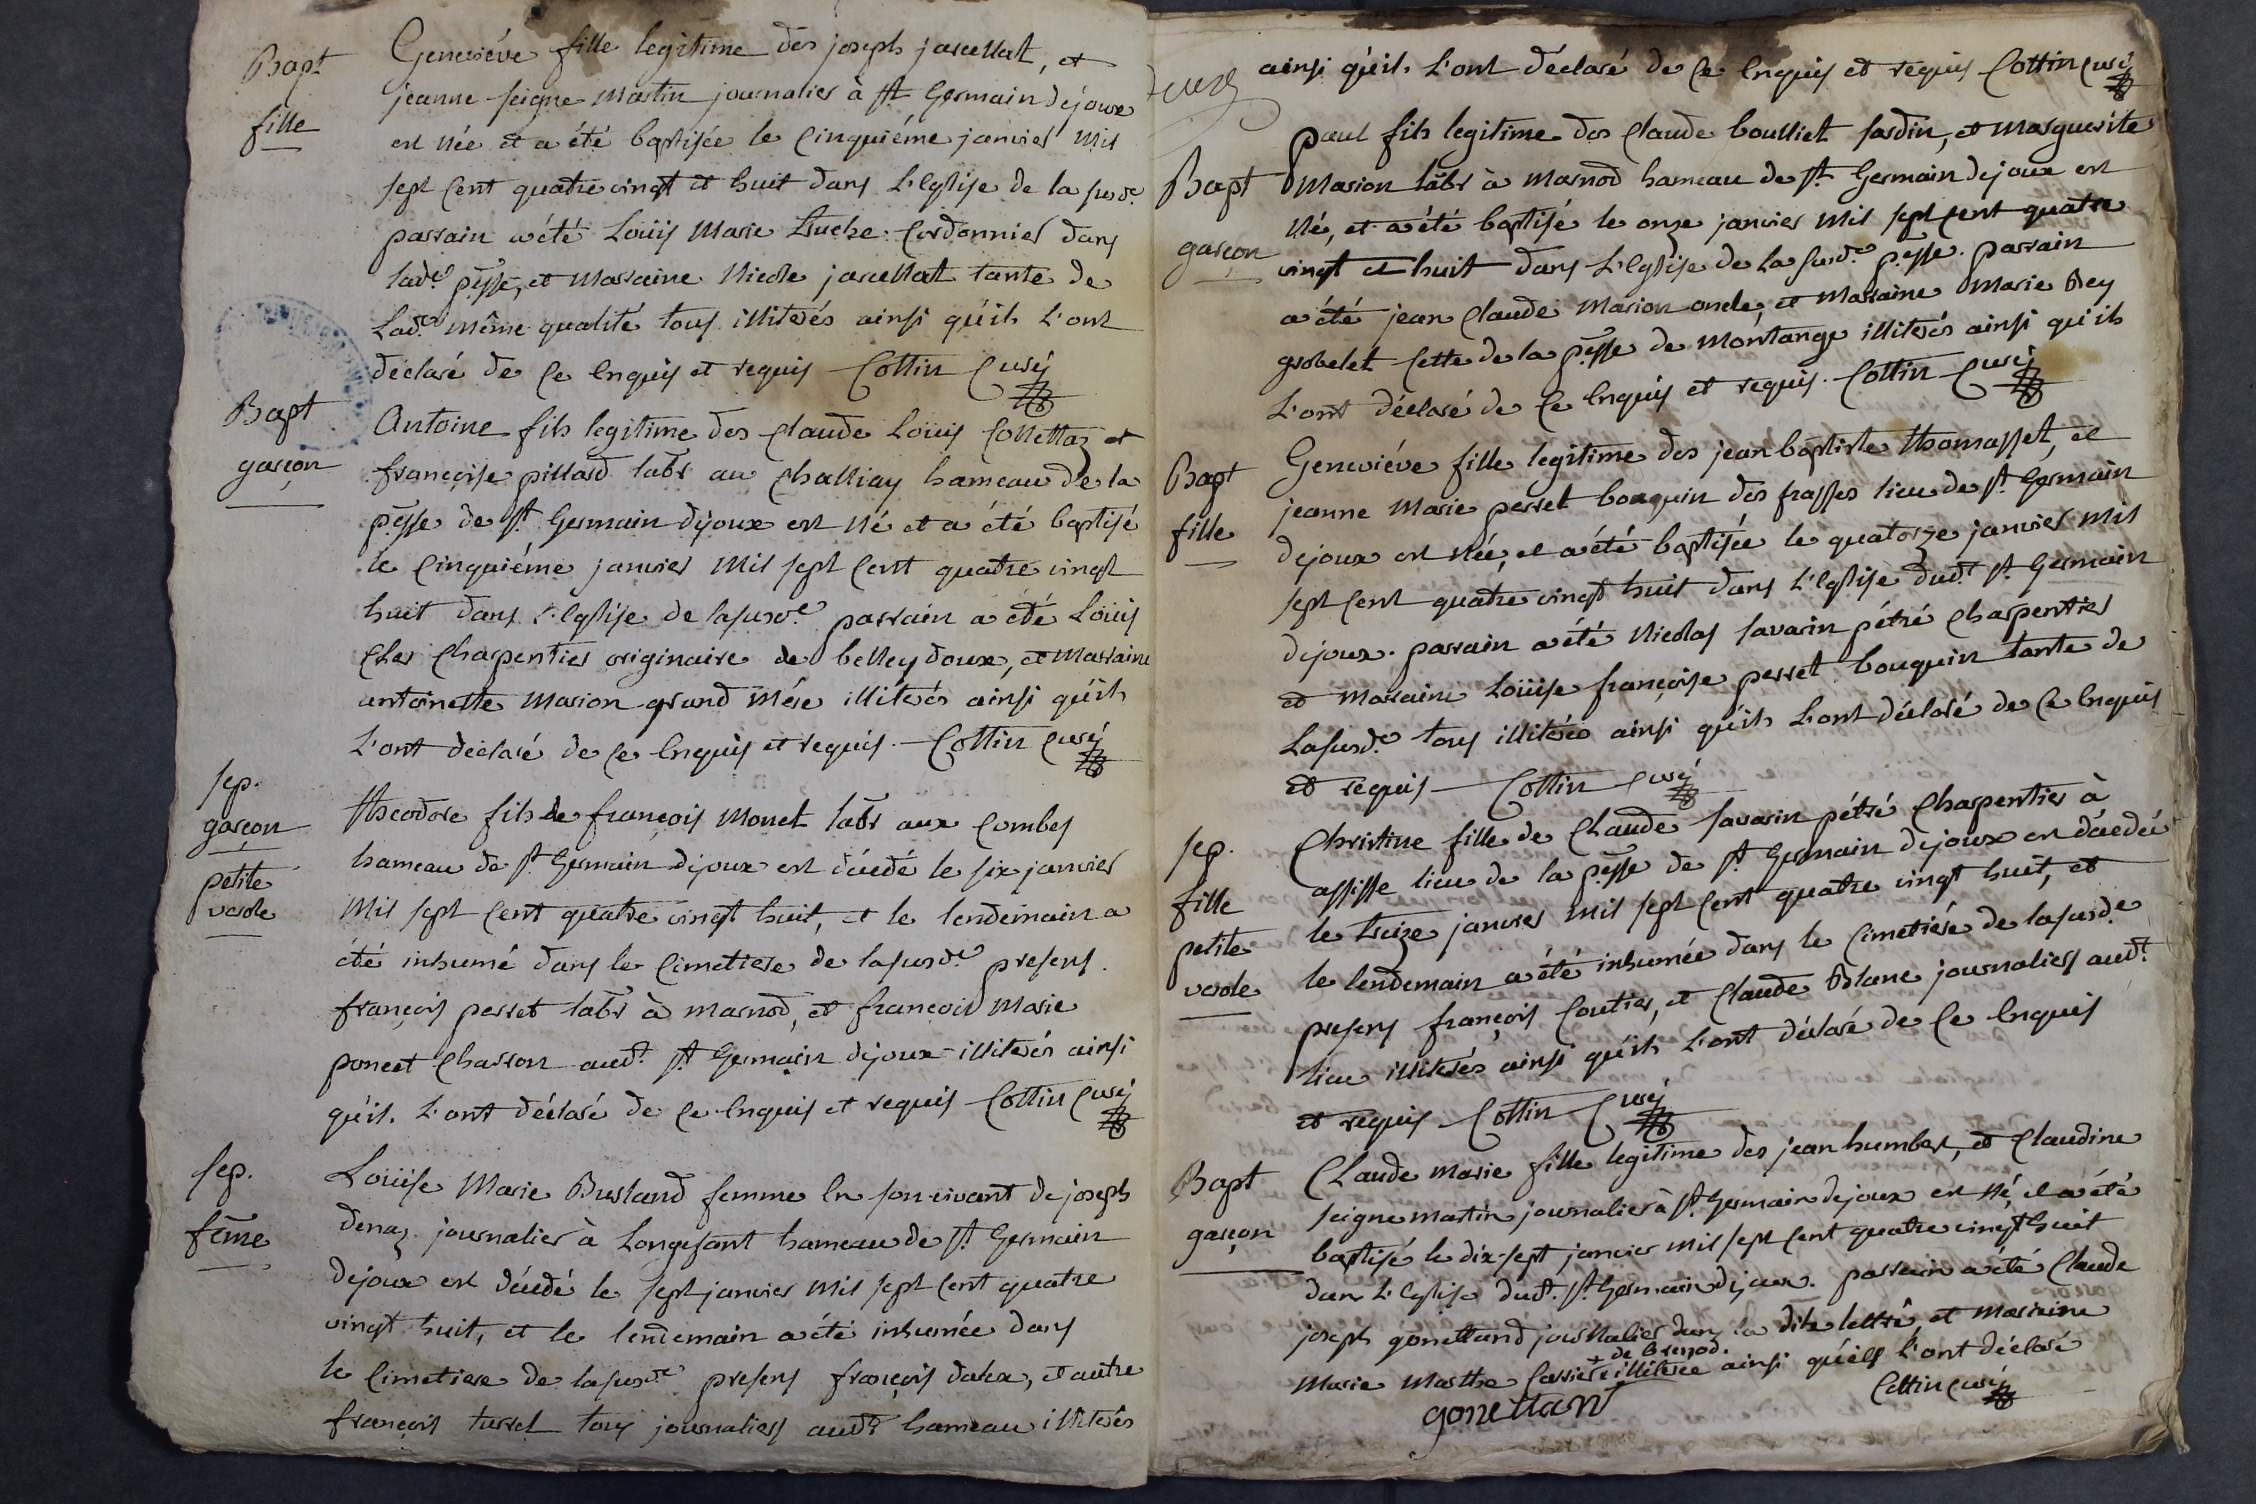 Bapt
fille
Geneviéve fille legitime des joseph jacellat, et
jeanne seigne Martin journalier à St Germain dejoux
est née et a été baptisée le cinquiéme janvier Mil
sept cent quatre vingt et huit dans L'Eglise de la susde
parrain a été Loüis Marie Cordonnier dans
lade psse, et Marraine Nicole jacellat tante de
Lade même qualité tous illiterés ainsi qu'ils L'ont
déclaré de ce Enquis et requis Cottin Curé
Bapt
garçon
Antoine fils legitime des claude Loüis Collettaz et
françoise pillard labr au Challiay hameau de la
psse de St Germain dijoux est né et a été baptisé
le Cinquiéme janvier Mil sept cent quatre vingt
huit dans L'Eglise de lasusde parrain a été Loüis
Charpentier originaire de belleydoux, et Marraine
antoinette Marion grand Mére illiterés ainsi qu'ils
L'ont déclaré de ce Enquis et requis. Cottin Curé
sep.
garçon
petite
verole
Theodore fils de françois Monet labr aux Combes
hameau de St Germain dijoux est décédé le six janvier
Mil sept cent quatre vingt huit, et le lendemain a
été inhumé dans le Cimetiere de lasusde presens
françois perret labr à marnod, et francois Marie
poncet Charron audt St Germain dijoux illiterés ainsi
qu'ils L'ont déclaré de ce Enquis et requis Cottin Curé
sep.
féme
Loüise Marie Burland femme En son vivant de joseph
denaz journalier à Longefant hameau de St Germain
dejoux est décédé le sept janvier Mil sept cent quatre
vingt huit, et le lendemain a été inhumée dans
le Cimetiere de lasusde presens françois et autre
françois turrel tous journaliers audt hameau illiterés
ainsi qu'ils L'ont déclaré de ce Enquis et requis Cottin Curé
Bapt
garçon
paul fils legitime des claude boulliet jardin, et Marguerite
Marion labr à Marnod hameau de St Germain dejoux est
Né, et a été baptisé le onze janvier Mil sept cent quatre
vingt et huit dans L'Eglise de la susde psse. parrain
a été jean claude Marion oncle, et Marraine Marie Rey
grobelet Cette de la psse de Montange illiterés ainsi qu'ils
L'ont déclaré de ce Enquis et requis. Cottin Curé
Bapt
fille
Geneviéve fille legitime des jean baptiste thomasset, et
jeanne Marie perret bouquin des frasses lieu de St Germain
dejoux est Née, et a été baptisée le quatorze janvier Mil
sept cent quatre vingt huit dans L'Eglise dudt St Germain
dijoux. parrain a été Nicolas savarin pétré Charpentier
et marraine Loüise françoise perret bouquin tante de
Lasusde tous illiterés ainsi qu'ils L'ont déclaré de ce Enquis
et requis Cottin Curé
sep.
fille
petite
verole
Christine fille de Claude savarin pétré Charpentier à
assisse lieu de la psse de St Germain dejoux est décédée
le treize janvier Mil sept cent quatre vingt huit, et
le lendemain a été inhumée dans le Cimetiére de lasusde
presens françois Coutier, et Claude Blanc journaliers audt
lieu illiterés ainsi qu'ils L'ont déclaré de ce Enquis
et requis Cottin Curé
Bapt
garçon
Claude marie fille legitime des jean humbert, et Claudine
seigne martin journalier à St Germain dejoux est Né, et a été
baptisé le dix-sept janvier Mil sept cent quatre vingt huit
dans L'Eglise dudt. St Germain dijoux. parrain a été Claude
joseph gonettand journalier dans la dite lettré, et Marraine
+ de brenod.
Marie Marthe Carrier + illiterée ainsi qu'ils L'ont déclaré
gonettant Cottin Curé